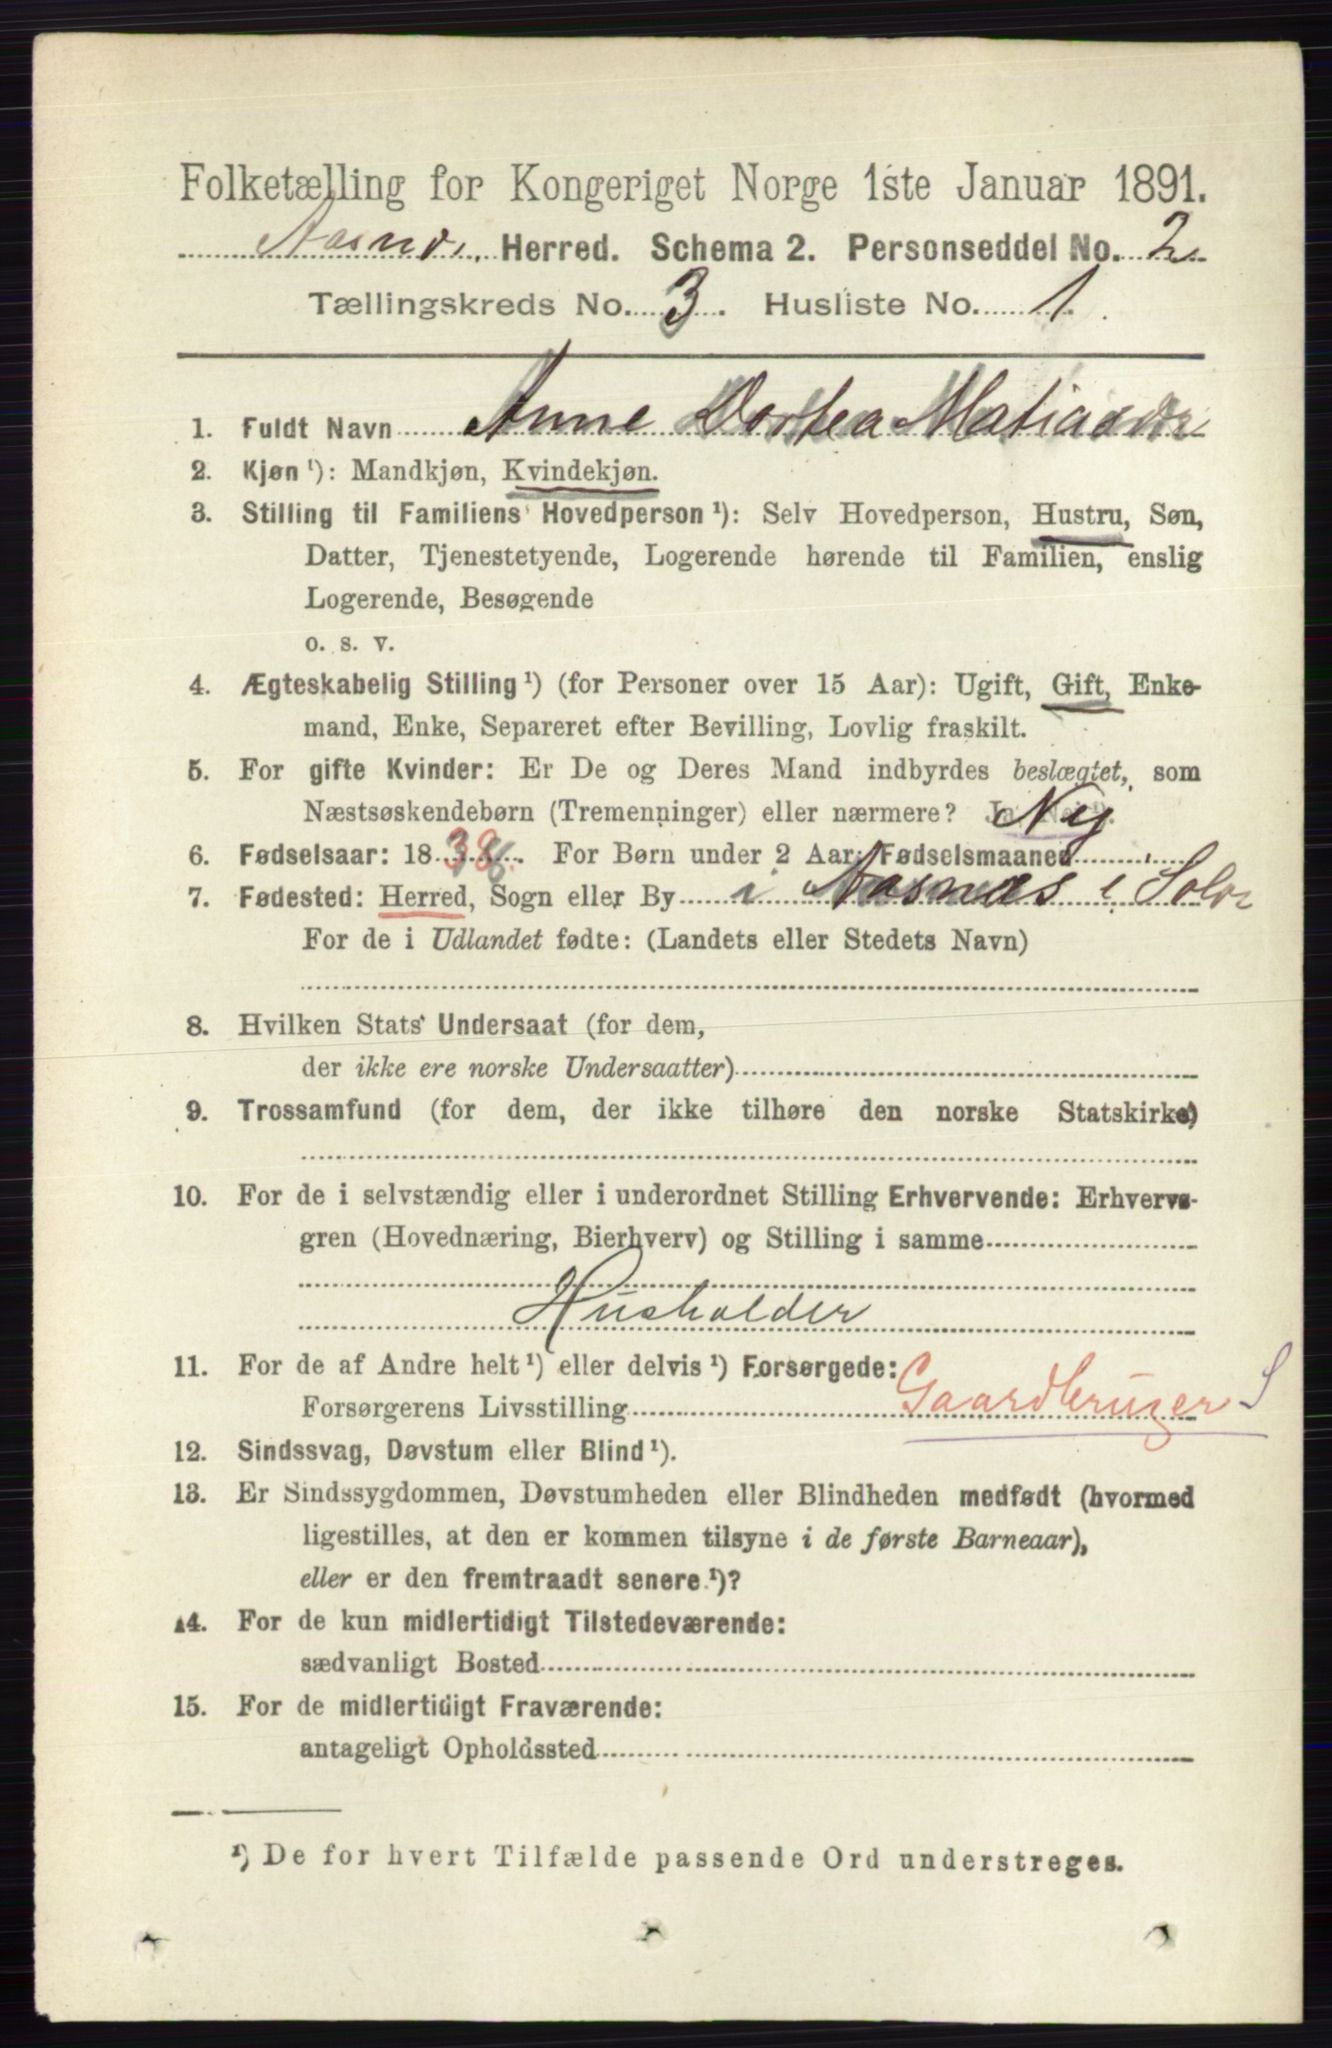 Folketælling for Kongeriget Norge 1ste Januar 1891.
Aasnes Herred. Schema 2. Personseddel No. 2
Tællingskreds No. 3. Husliste No. 1.
1. Fuldt Navn Anne Dorthea Matiasdr
2. Kjøn ¹): Mandkjøn, Kvindekjøn.
3. Stilling til Familiens Hovedperson ¹): Selv Hovedperson, Hustru, Søn,
Datter, Tjenestetyende, Logerende hørende til Familien, enslig
Logerende, Besøgende
o. s. v.
4. Ægteskabelig Stilling ¹) (for Personer over 15 Aar): Ugift, Gift, Enke-
mand, Enke, Separeret efter Bevilling, Lovlig fraskilt.
5. For gifte Kvinder: Er De og Deres Mand indbyrdes beslægtet, som
Næstsøskendebørn (Tremenninger) eller nærmere? Ja Nej
6. Fødselsaar: 1838. For Børn under 2 Aar: Fødselsmaaned
7. Fødested: Herred, Sogn eller By i Aasnæs i Solør
For de i Udlandet fødte: (Landets eller Stedets Navn)
8. Hvilken Stats Undersaat (for dem,
der ikke ere norske Undersaatter)
9. Trossamfund (for dem, der ikke tilhøre den norske Statskirke)
10. For de i selvstændig eller i underordnet Stilling Erhvervende: Erhvervs-
gren (Hovednæring, Bierhverv) og Stilling i samme
Husholder
11. For de af Andre helt ¹) eller delvis ¹) Forsørgede:
Forsørgerens Livsstilling Gaardbruger S
12. Sindssvag, Døvstum eller Blind ¹).
13. Er Sindssygdommen, Døvstumheden eller Blindheden medfødt (hvormed
ligestilles, at den er kommen tilsyne i de første Barneaar),
eller er den fremtraadt senere ¹)?
14. For de kun midlertidigt Tilstedeværende:
sædvanligt Bosted
15. For de midlertidigt Fraværende:
antageligt Opholdssted
¹) De for hvert Tilfælde passende Ord understreges.